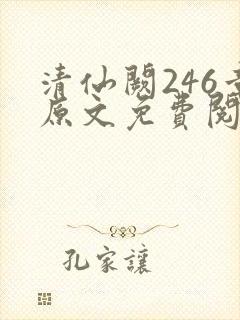 清仙闕246章
原文免費閱
孔家讓